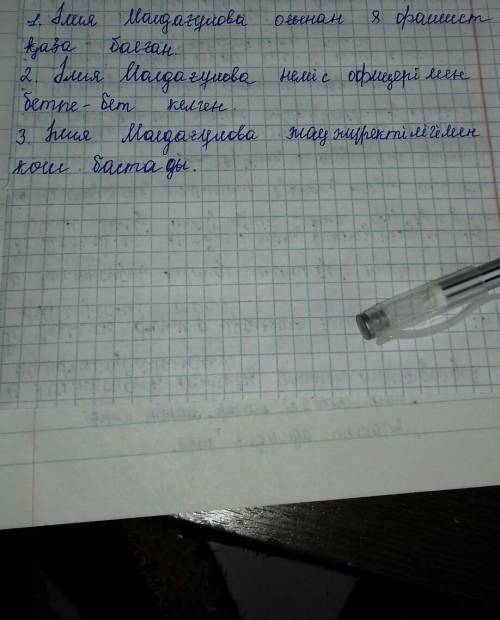 1. Әлия Молдағұлова оғынан 8 фашист
қаза болған.
2. Әлия Молдағұлова неміс офицерімен
бетпе-бет келген.
3. Әлия Молдағұлова жаужүректілігімен
көш бастады.